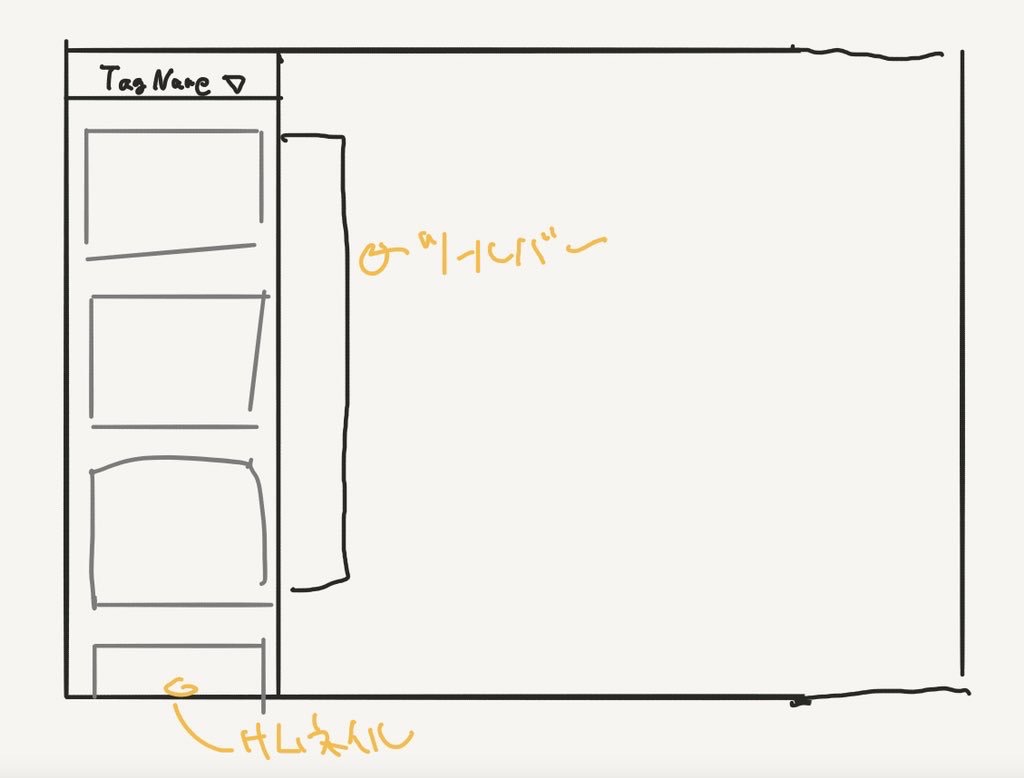 Tag Name ▽
ツールバー
サムネイル